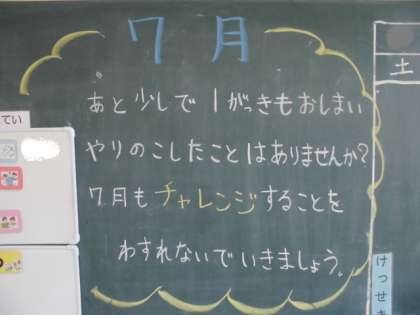 7月
あと少しで1がっきもおしまい
やりのこしたことはありませんか?
7月もチャレンジすることを
わすれないでいきましょう。
土
てい
けっせき